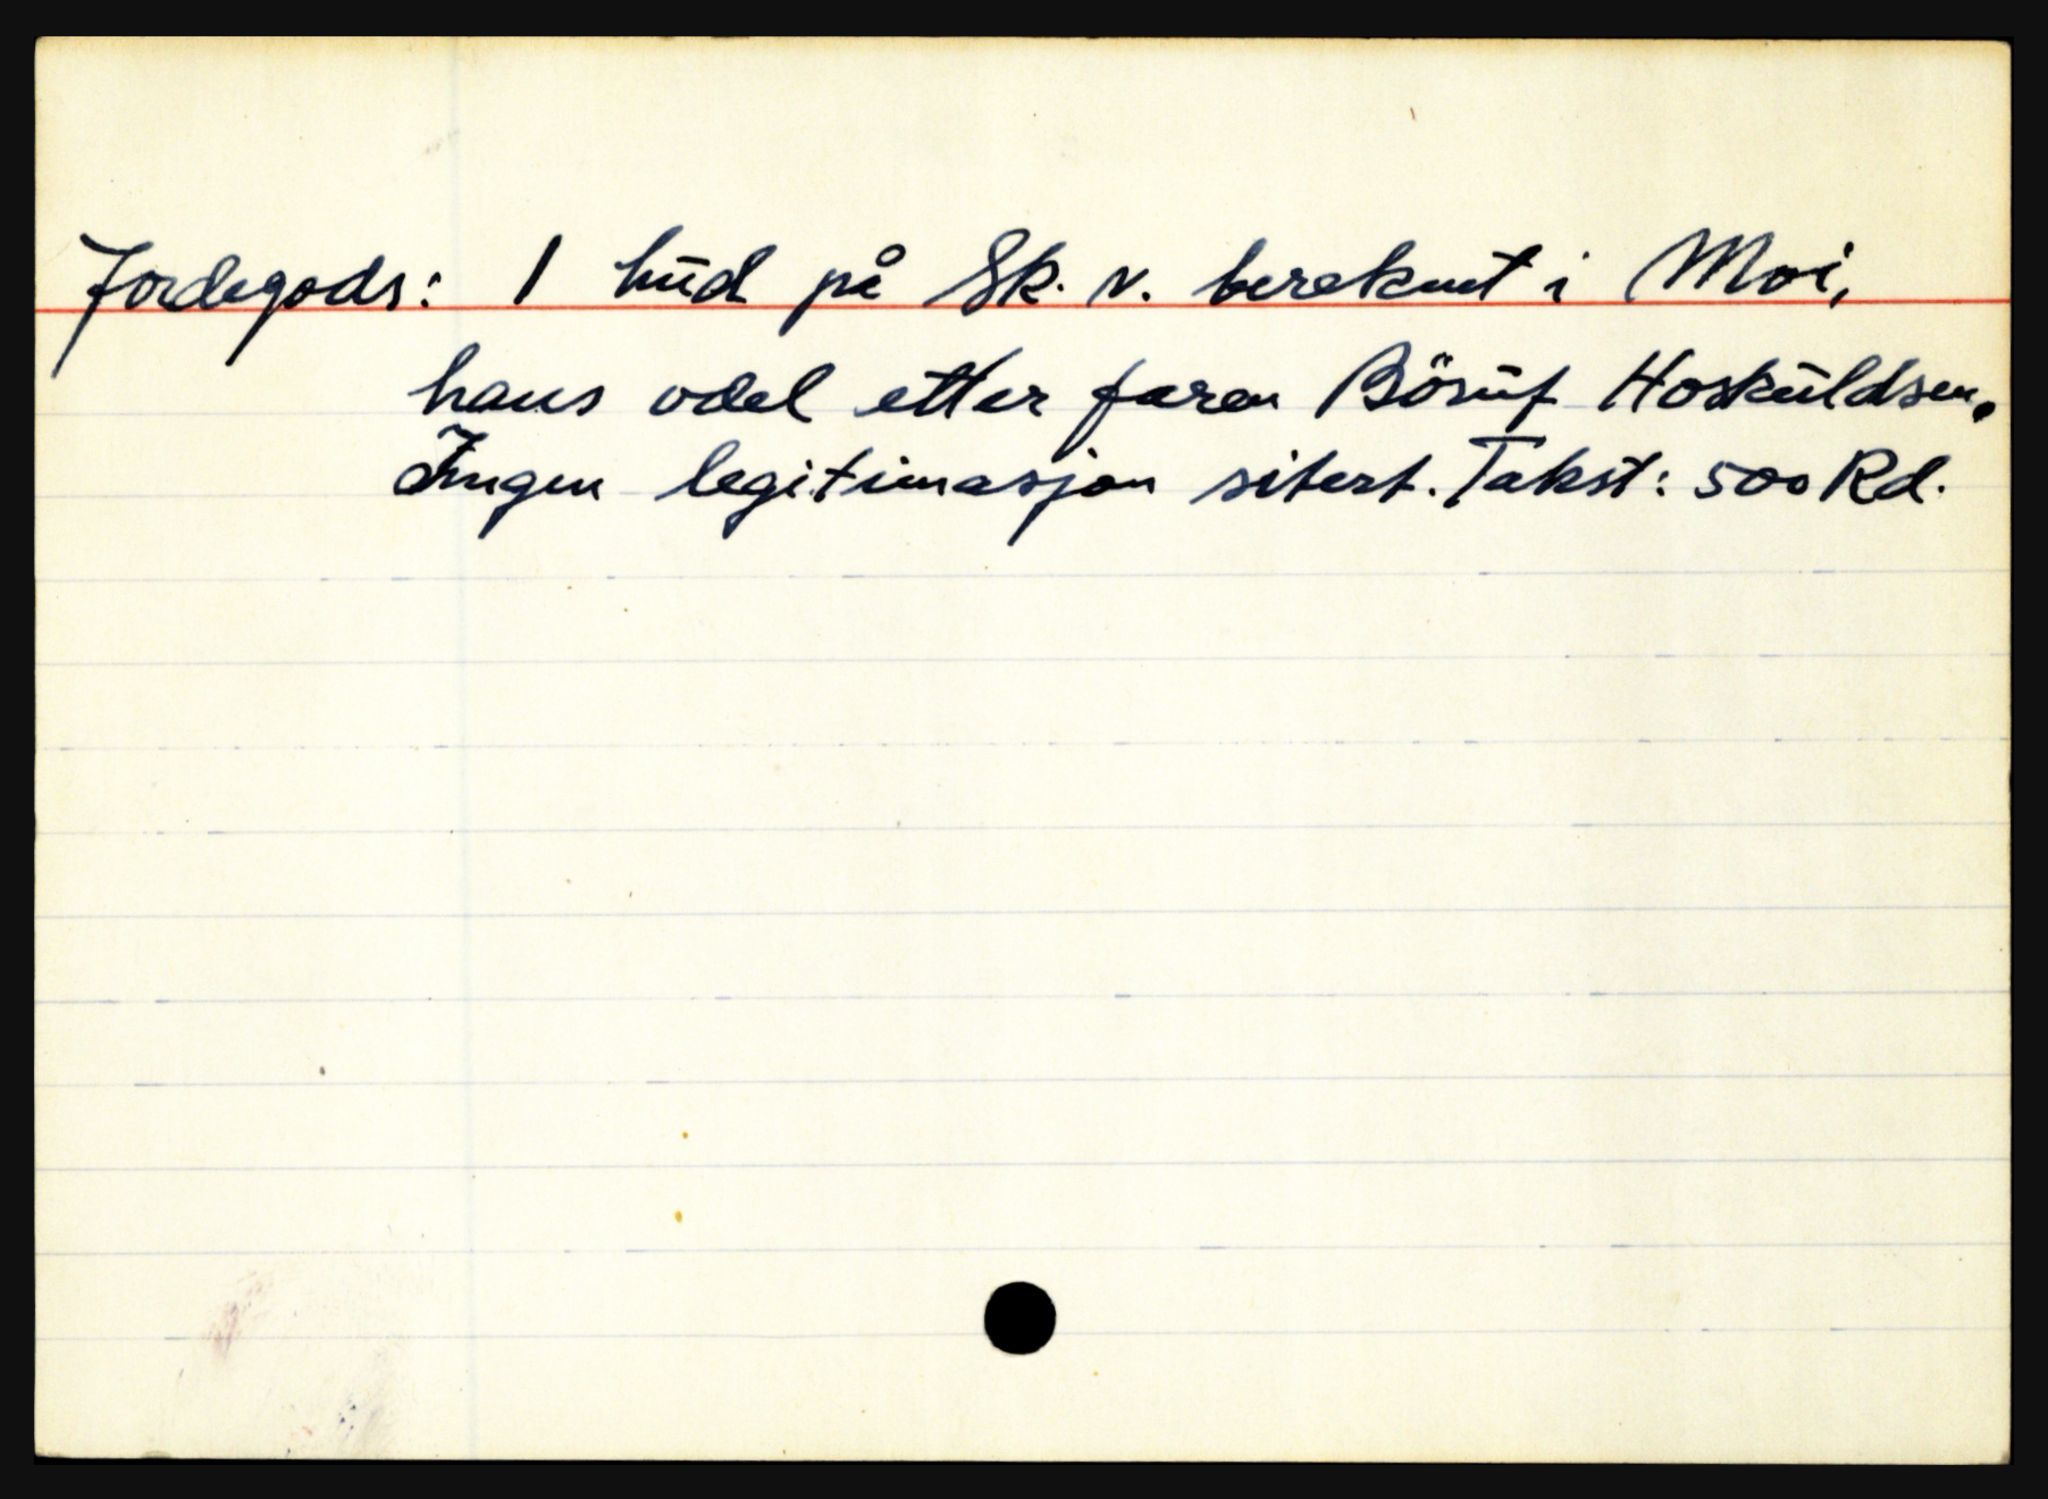 Jordegods: 1 hud på Sk. v. bereknet i Moi,
hans odel etter faren Börüf Hoskuldsen.
Ingen legitimasjon sitert. Takst: 500 Rd.